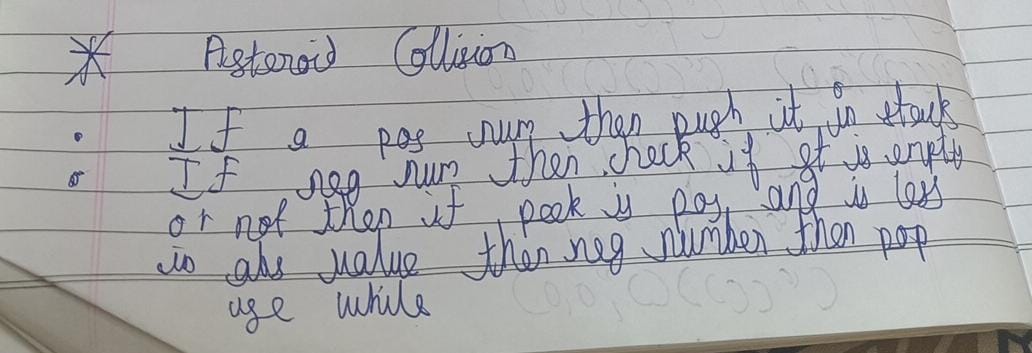 * Asteroid Collision
• If a pos num then push it in stack
• If neg num then check if st is empty
or not then if peek is pos and is less
in abs value then neg number then pop
use while